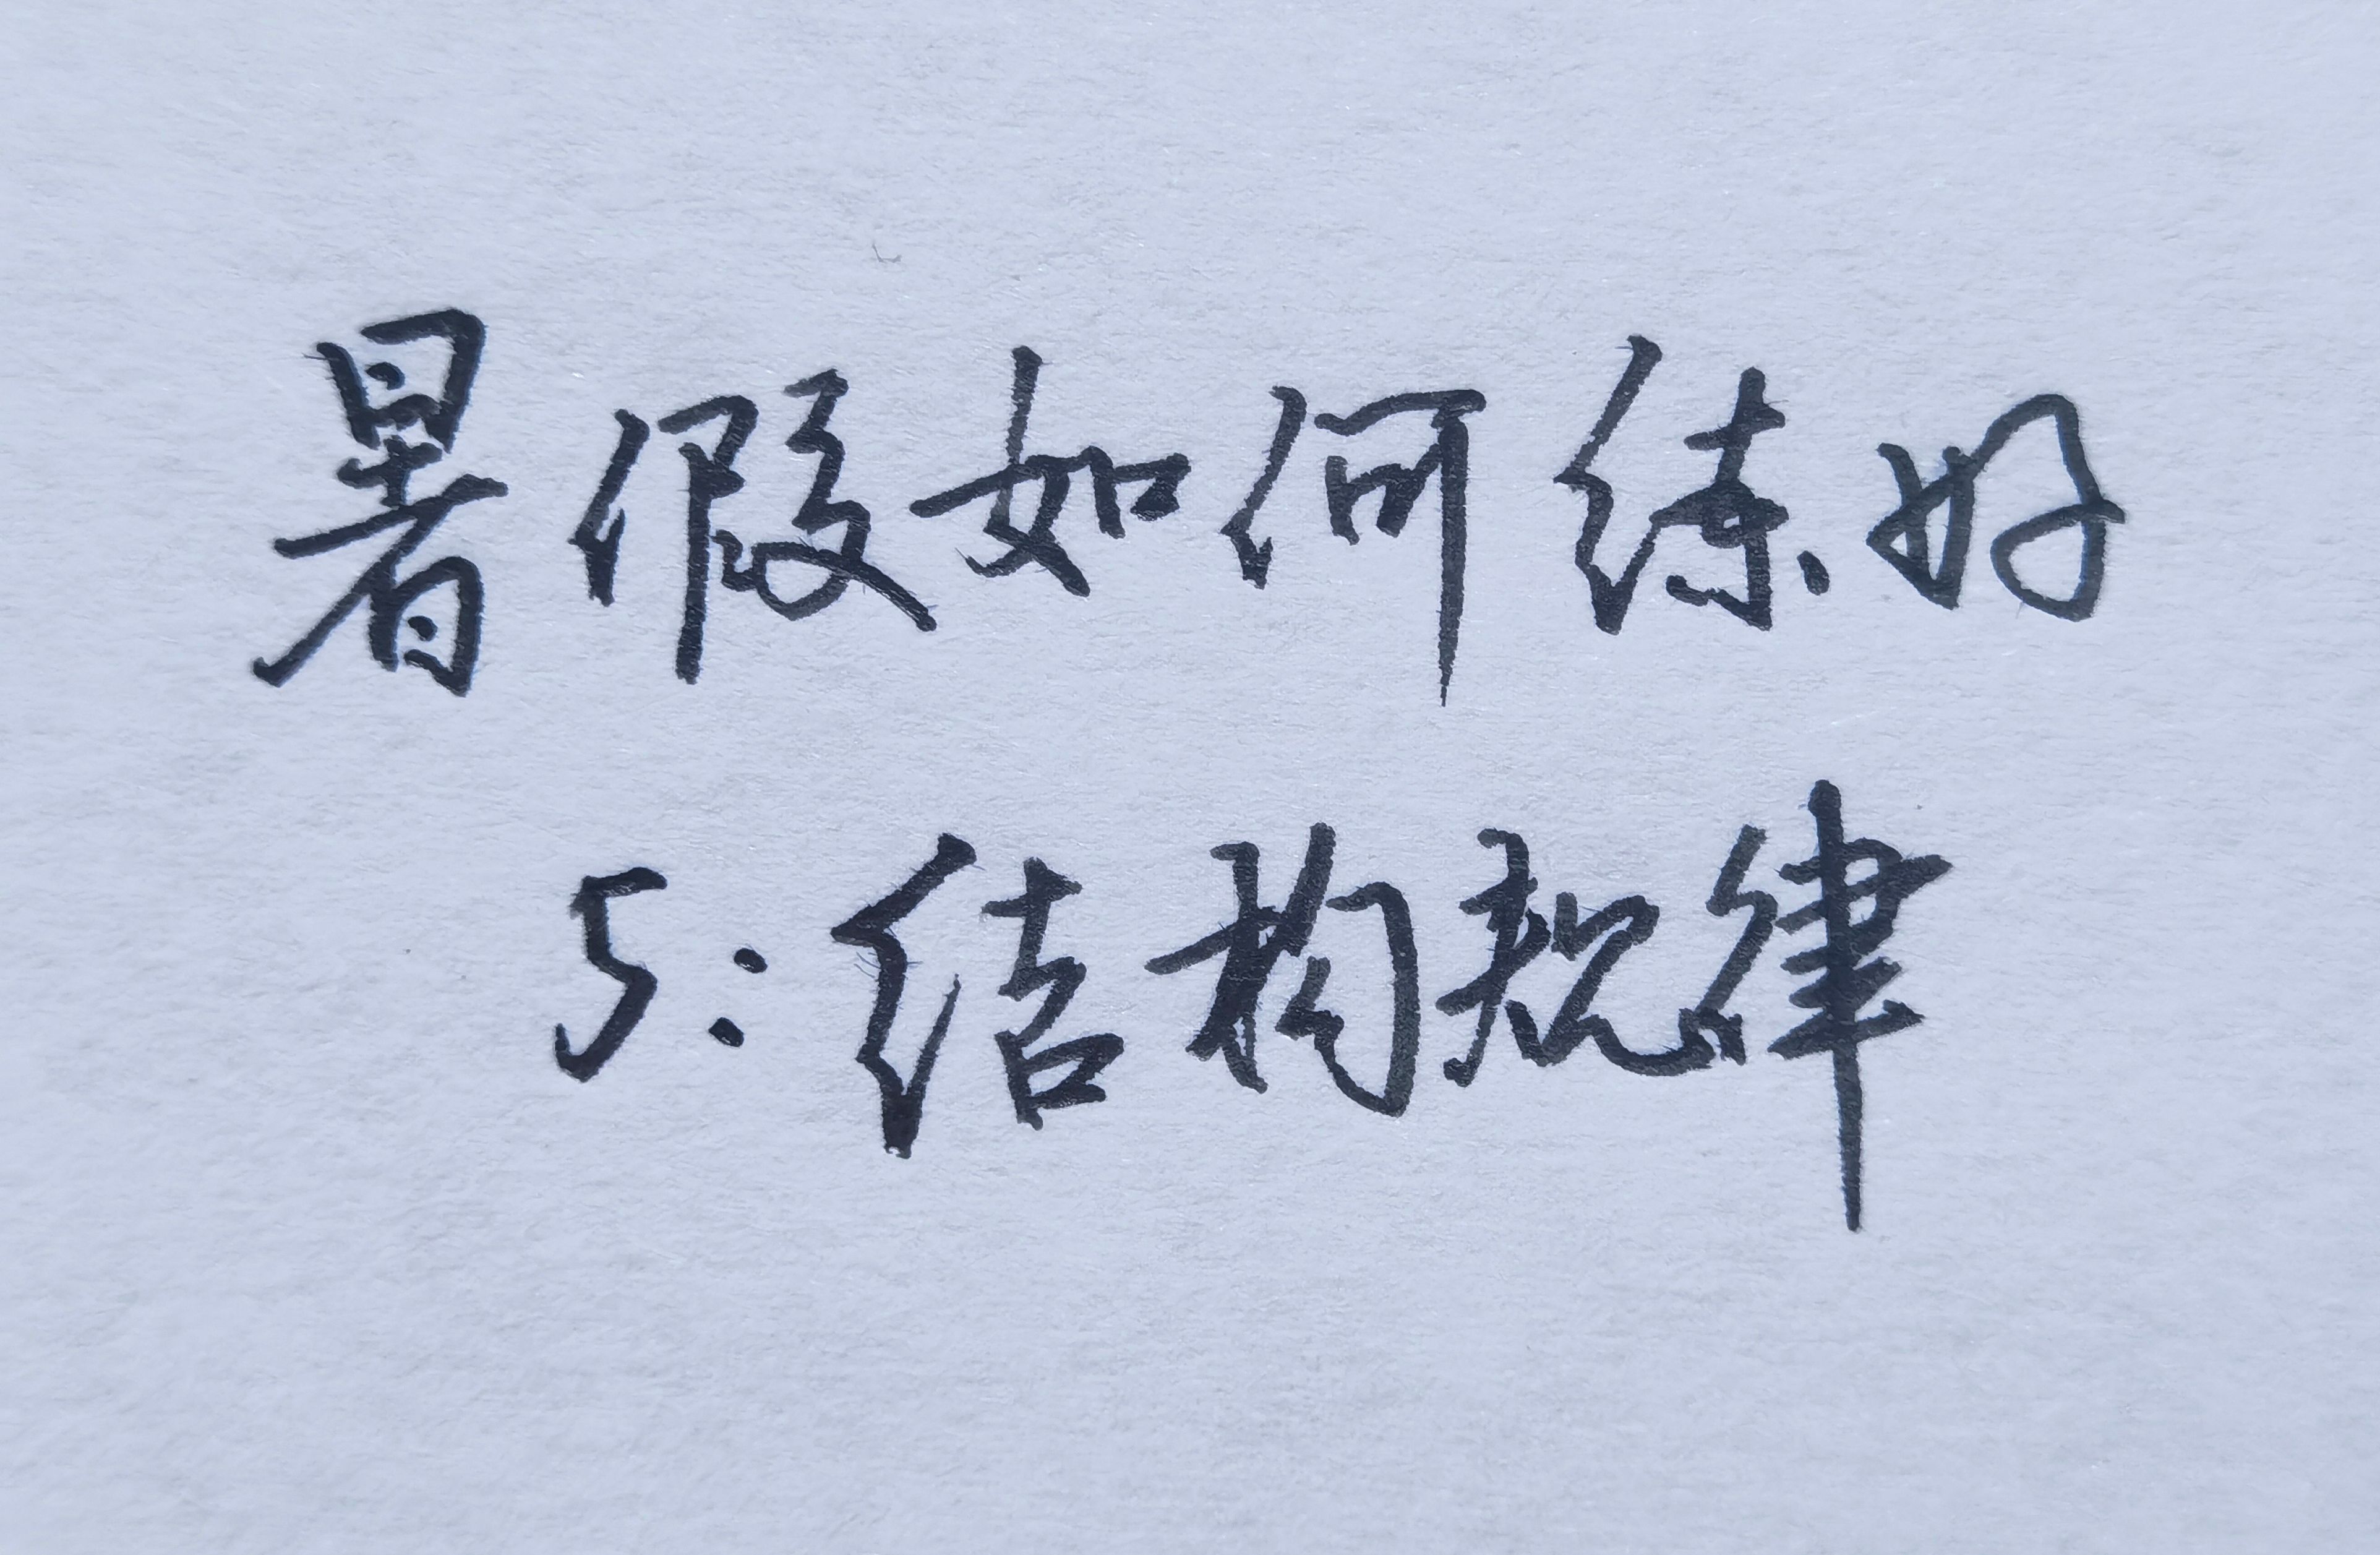 暑假如何练好
5:结构规律